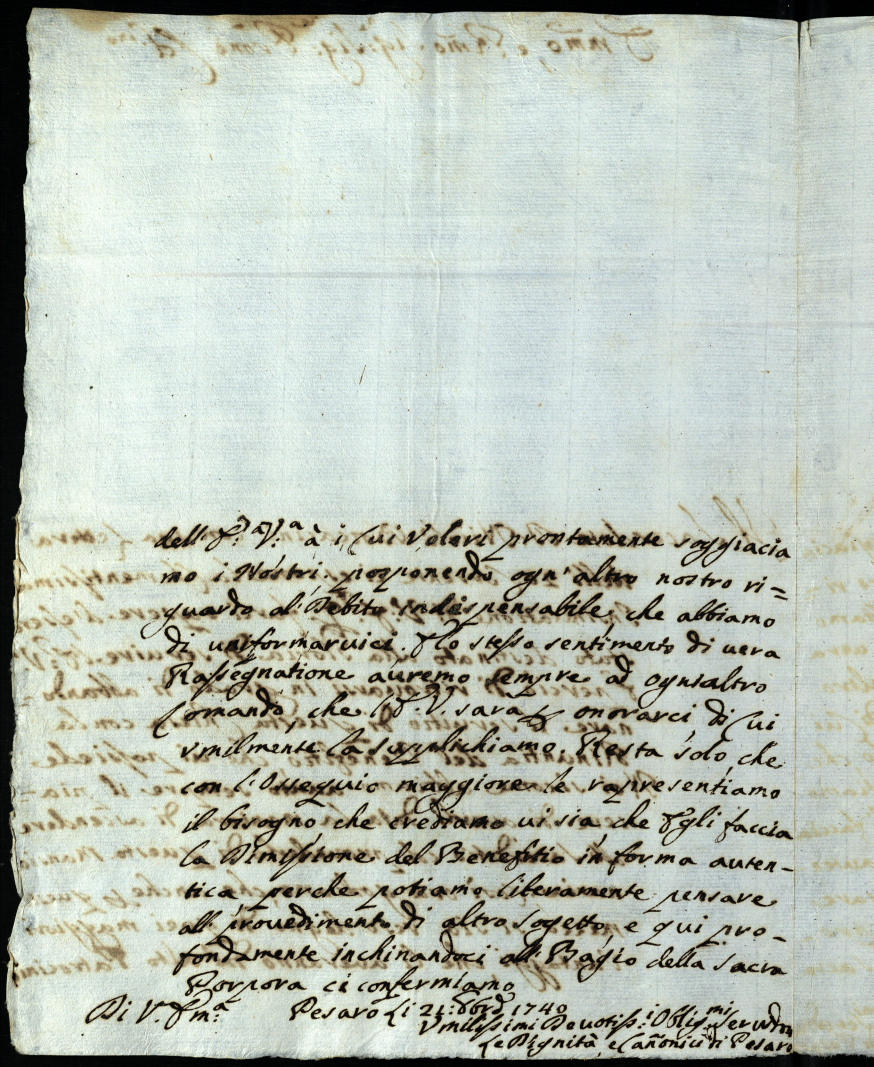 dell' E.ª V.ª à i Cui Voleri prontamente soggiacia
mo i Nostri, posponendo ogn' altro nostro ri=
guardo al Debito indispensabile, che abbiamo
di uniformaruici. Lo stesso sentimento di uera
Rassegnatione auremo sempre ad ogni altro
Comando, che l'E.V. sarà p onorarci di Cui
vmilmente la supplichiamo. Resta solo, che
con l'Ossequio maggiore le rapresentiamo
il bisogno che crediamo ui sia, che Egli faccia
la Dimissione del Benefitio in forma auten-
tica perche potiamo liberamente pensare
all' prouedimento di altro sogetto, e qui pro-
fondamente inchinandoci all' Bagio della sacra
Porpora ci confermiamo
Di V. Emª Pesaro Li 21: 1740
Vmilissimi Deuotiss:i Oblig:mi Seruit
Le Dignità, e Canonici di Pesaro